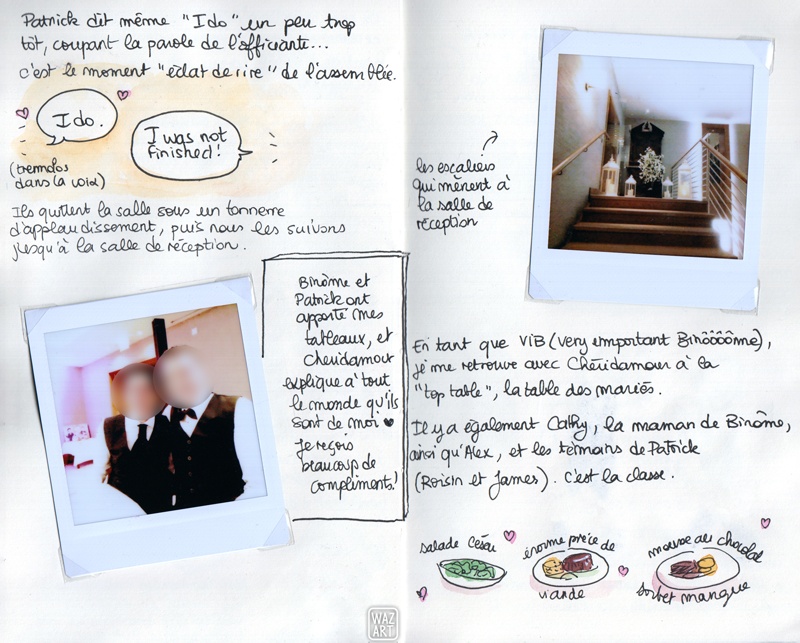 Patrick dit même "I do" un peu trop
tôt, coupant la parole de l'officiante...
c'est le moment "éclat de rire" de l'assemblée.
I do.
I was not
finished!
(tremolos
dans la voix)
Ils quittent la salle sous un tonnerre
d'applaudissement, puis nous les suivons
jusqu'à la salle de réception.
Binôme et
Patrick ont
apporté mes
tableaux, et
Chéridamour
explique à tout
le monde qu'ils
sont de moi ♥
Je reçois
beaucoup de
compliments!
les escaliers
qui mènent à
la salle de
réception
En tant que VIB (Very Important Binôôôôme),
je me retrouve avec Chéridamour à la
"top table", la table des mariés.
Il y a également Cathy, la maman de Binôme,
ainsi qu'Alex, et les témoins de Patrick
(Roisin et James). C'est la classe.
salade César
énorme pièce de
viande
mousse au chocolat
sorbet mangue
WAZ
ART